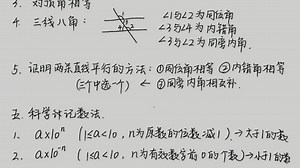 3. 对顶角相等
4. 三线八角: ∠1与∠2为同位角
∠3与∠4为内错角
∠3与∠2为同旁内角.
5. 证明两条直线平行的方法: ①同位角相等 ②内错角相等
(三个中选一个) ← ③同旁内角相互补.
五. 科学计记数法.
1. a×10ⁿ (1≤a<10, n为原数的位数减1) → 大于1的数
2. a×10⁻ⁿ (1≤a<10, n为有效数字前0的个数) → 小于1的数